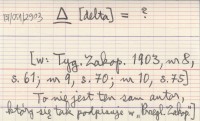 Δ [delta] = ?
[w: Tyg. Zakop. 1903, nr 8,
s. 61; nr 9, s. 70; nr 10, s. 75]
To nie jest ten sam autor,
który się tak podpisuje w „Przegl. Zakop."